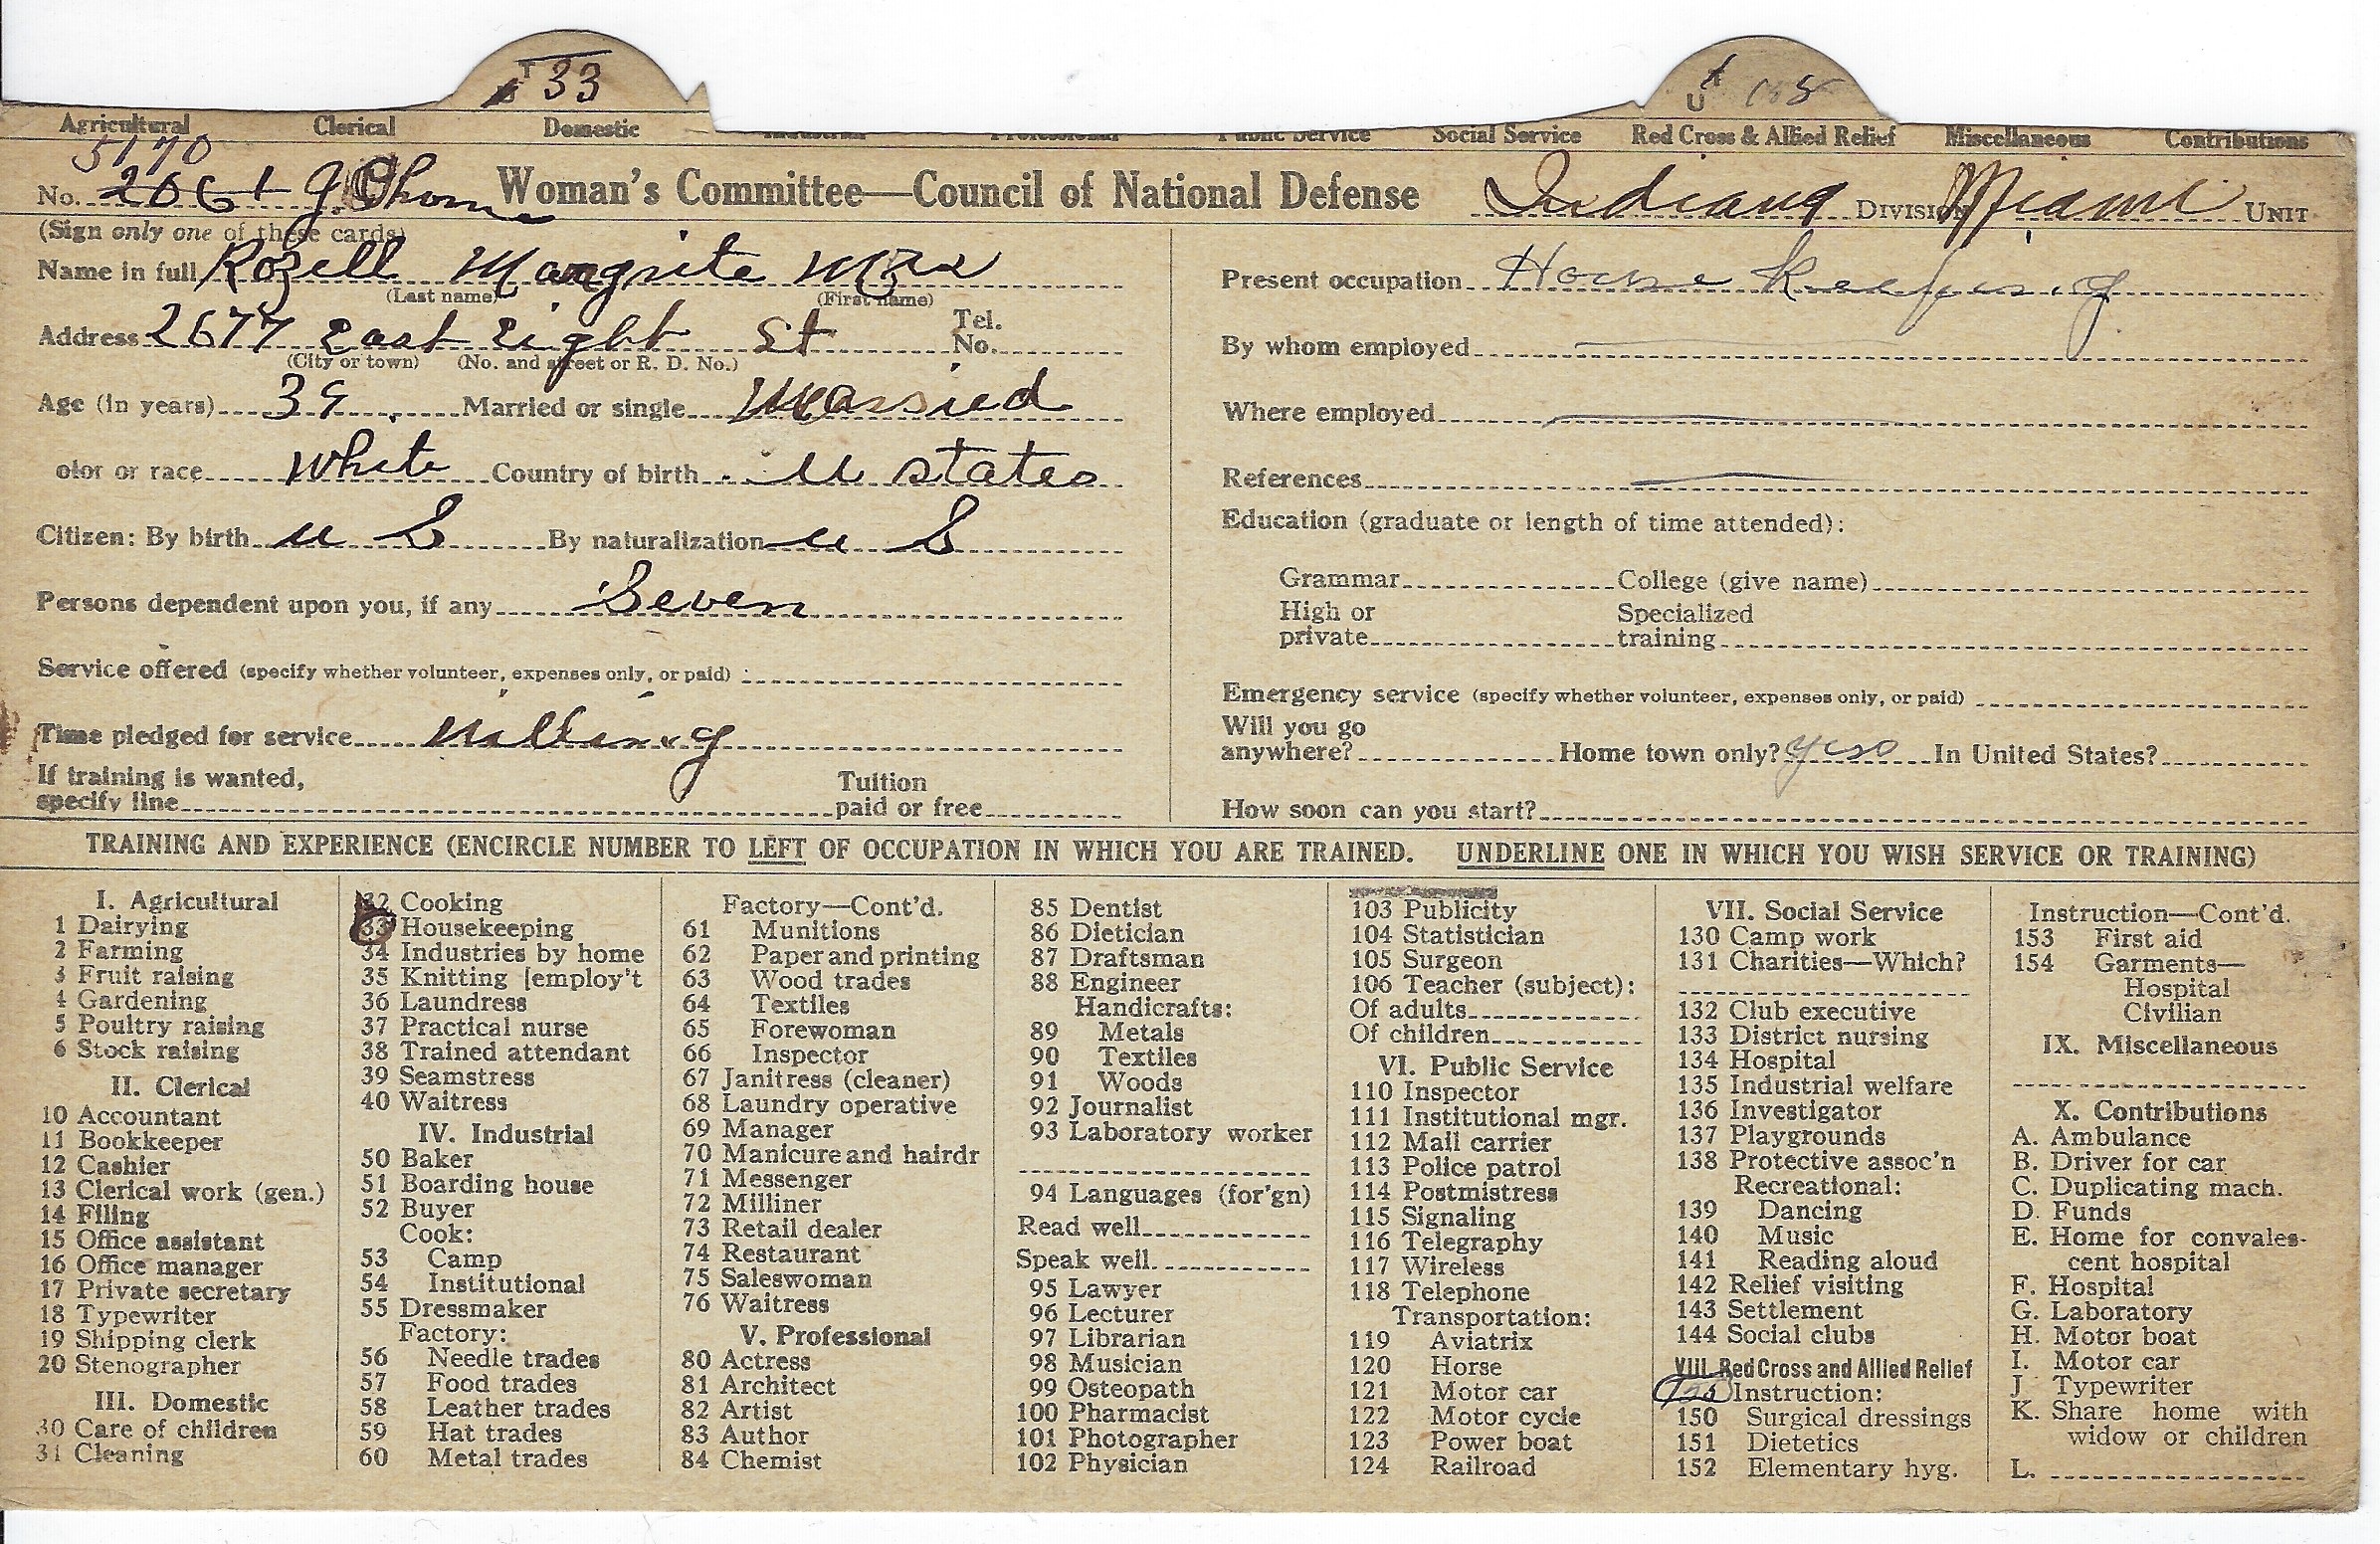 T 33
U
Agricultural Clerical Domestic Industrial Professional Public Service Social Service Red Cross & Allied Relief Miscellaneous Contributions
5170
No. 2061 Woman's Committee—Council of National Defense Indiana DIVISION Miami UNIT
(Sign only one of these cards)
Name in full Rozell Mangrite Mrs
(Last name) (First name)
Address 2677 East Eight St Tel. No.
(City or town) (No. and street or R. D. No.)
Age (in years) 39 Married or single Married
olor or race White Country of birth U states
Citizen: By birth U S By naturalization U S
Persons dependent upon you, if any Seven
Service offered (specify whether volunteer, expenses only, or paid) :
Time pledged for service Willing
If training is wanted,
specify line Tuition paid or free
Present occupation House Keeping
By whom employed
Where employed
References
Education (graduate or length of time attended):
Grammar College (give name)
High or private Specialized training
Emergency service (specify whether volunteer, expenses only, or paid)
Will you go
anywhere? Home town only? yes In United States?
How soon can you start?
TRAINING AND EXPERIENCE (ENCIRCLE NUMBER TO LEFT OF OCCUPATION IN WHICH YOU ARE TRAINED. UNDERLINE ONE IN WHICH YOU WISH SERVICE OR TRAINING)
I. Agricultural
1 Dairying
2 Farming
3 Fruit raising
4 Gardening
5 Poultry raising
6 Stock raising
II. Clerical
10 Accountant
11 Bookkeeper
12 Cashier
13 Clerical work (gen.)
14 Filing
15 Office assistant
16 Office manager
17 Private secretary
18 Typewriter
19 Shipping clerk
20 Stenographer
III. Domestic
30 Care of children
31 Cleaning
32 Cooking
33 Housekeeping
34 Industries by home
35 Knitting [employ't
36 Laundress
37 Practical nurse
38 Trained attendant
39 Seamstress
40 Waitress
IV. Industrial
50 Baker
51 Boarding house
52 Buyer
Cook:
53 Camp
54 Institutional
55 Dressmaker
Factory:
56 Needle trades
57 Food trades
58 Leather trades
59 Hat trades
60 Metal trades
Factory—Cont'd.
61 Munitions
62 Paper and printing
63 Wood trades
64 Textiles
65 Forewoman
66 Inspector
67 Janitress (cleaner)
68 Laundry operative
69 Manager
70 Manicure and hairdr
71 Messenger
72 Milliner
73 Retail dealer
74 Restaurant
75 Saleswoman
76 Waitress
V. Professional
80 Actress
81 Architect
82 Artist
83 Author
84 Chemist
85 Dentist
86 Dietician
87 Draftsman
88 Engineer
Handicrafts:
89 Metals
90 Textiles
91 Woods
92 Journalist
93 Laboratory worker
94 Languages (for'gn)
Read well
Speak well
95 Lawyer
96 Lecturer
97 Librarian
98 Musician
99 Osteopath
100 Pharmacist
101 Photographer
102 Physician
103 Publicity
104 Statistician
105 Surgeon
106 Teacher (subject):
Of adults
Of children
VI. Public Service
110 Inspector
111 Institutional mgr.
112 Mail carrier
113 Police patrol
114 Postmistress
115 Signaling
116 Telegraphy
117 Wireless
118 Telephone
Transportation:
119 Aviatrix
120 Horse
121 Motor car
122 Motor cycle
123 Power boat
124 Railroad
VII. Social Service
130 Camp work
131 Charities—Which?
132 Club executive
133 District nursing
134 Hospital
135 Industrial welfare
136 Investigator
137 Playgrounds
138 Protective assoc'n
Recreational:
139 Dancing
140 Music
141 Reading aloud
142 Relief visiting
143 Settlement
144 Social clubs
VIII. Red Cross and Allied Relief
Instruction:
150 Surgical dressings
151 Dietetics
152 Elementary hyg.
Instruction—Cont'd.
153 First aid
154 Garments—
Hospital
Civilian
IX. Miscellaneous
X. Contributions
A. Ambulance
B. Driver for car
C. Duplicating mach.
D. Funds
E. Home for convales-
cent hospital
F. Hospital
G. Laboratory
H. Motor boat
I. Motor car
J Typewriter
K. Share home with
widow or children
L.